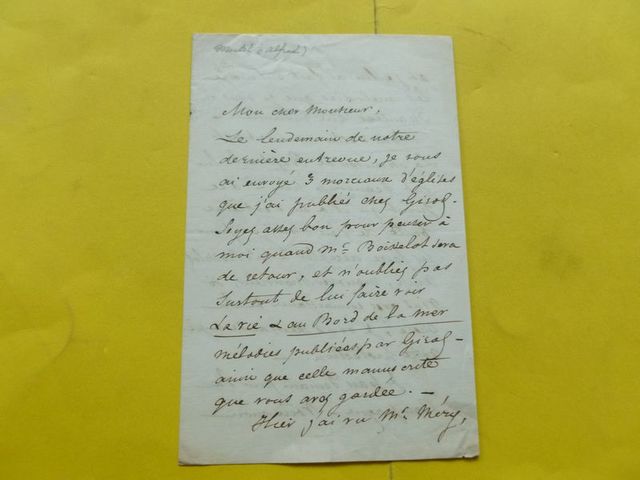 Mon cher Monsieur,
Le lendemain de notre
dernière entrevue, je vous
ai envoyé 3 morceaux d'églises
que j'ai publiés chez Girod.
Soyez assez bon pour penser à
moi quand Mr. Boisselot sera
de retour, et n'oubliez pas
surtout de lui faire voir
La vie & au Bord de la mer
mélodies publiées par Girod -
ainsi que celle manuscrite
que vous avez gardée. —
Hier j'ai vu Mr. Méry,